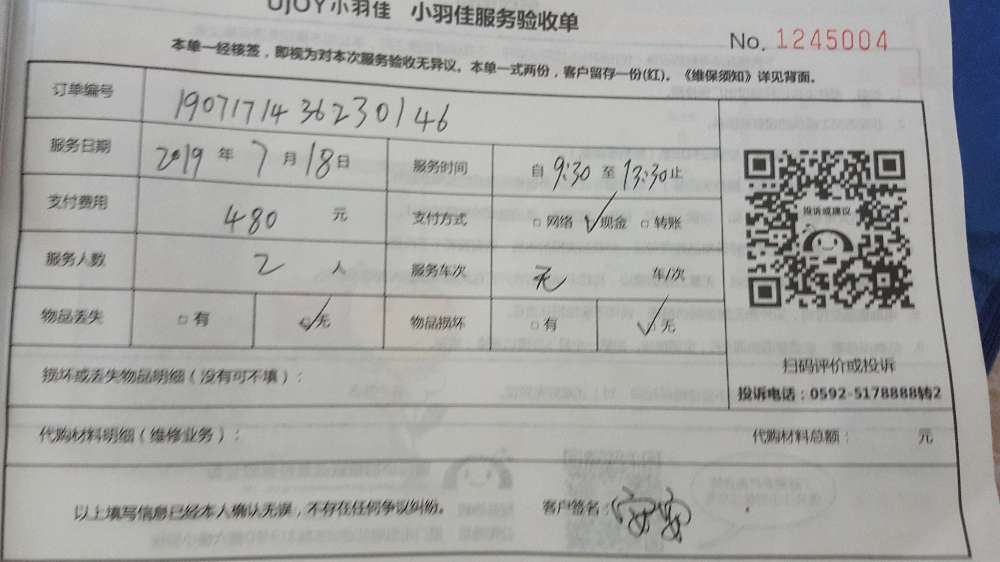 UJOY小羽佳 小羽佳服务验收单
No. 1245004
本单一经核签，即视为对本次服务验收无异议。本单一式两份，客户留存一份(红)。《维保须知》详见背面。
订单编号 1907171436230146
服务日期 2019 年 7 月 18 日 服务时间 自 9:30 至 13:30 止
支付费用 480 元 支付方式 □网络 ☑现金 □转账
服务人数 2 人 服务车次 无 车/次
物品丢失 □有 ☑无 物品损坏 □有 ☑无
投诉或建议
扫码评价或投诉
投诉电话：0592-5178888转2
损坏或丢失物品明细（没有可不填）：
代购材料明细（维修业务）： 代购材料总额： 元
以上填写信息已经本人确认无误，不存在任何争议纠纷。 客户签名：